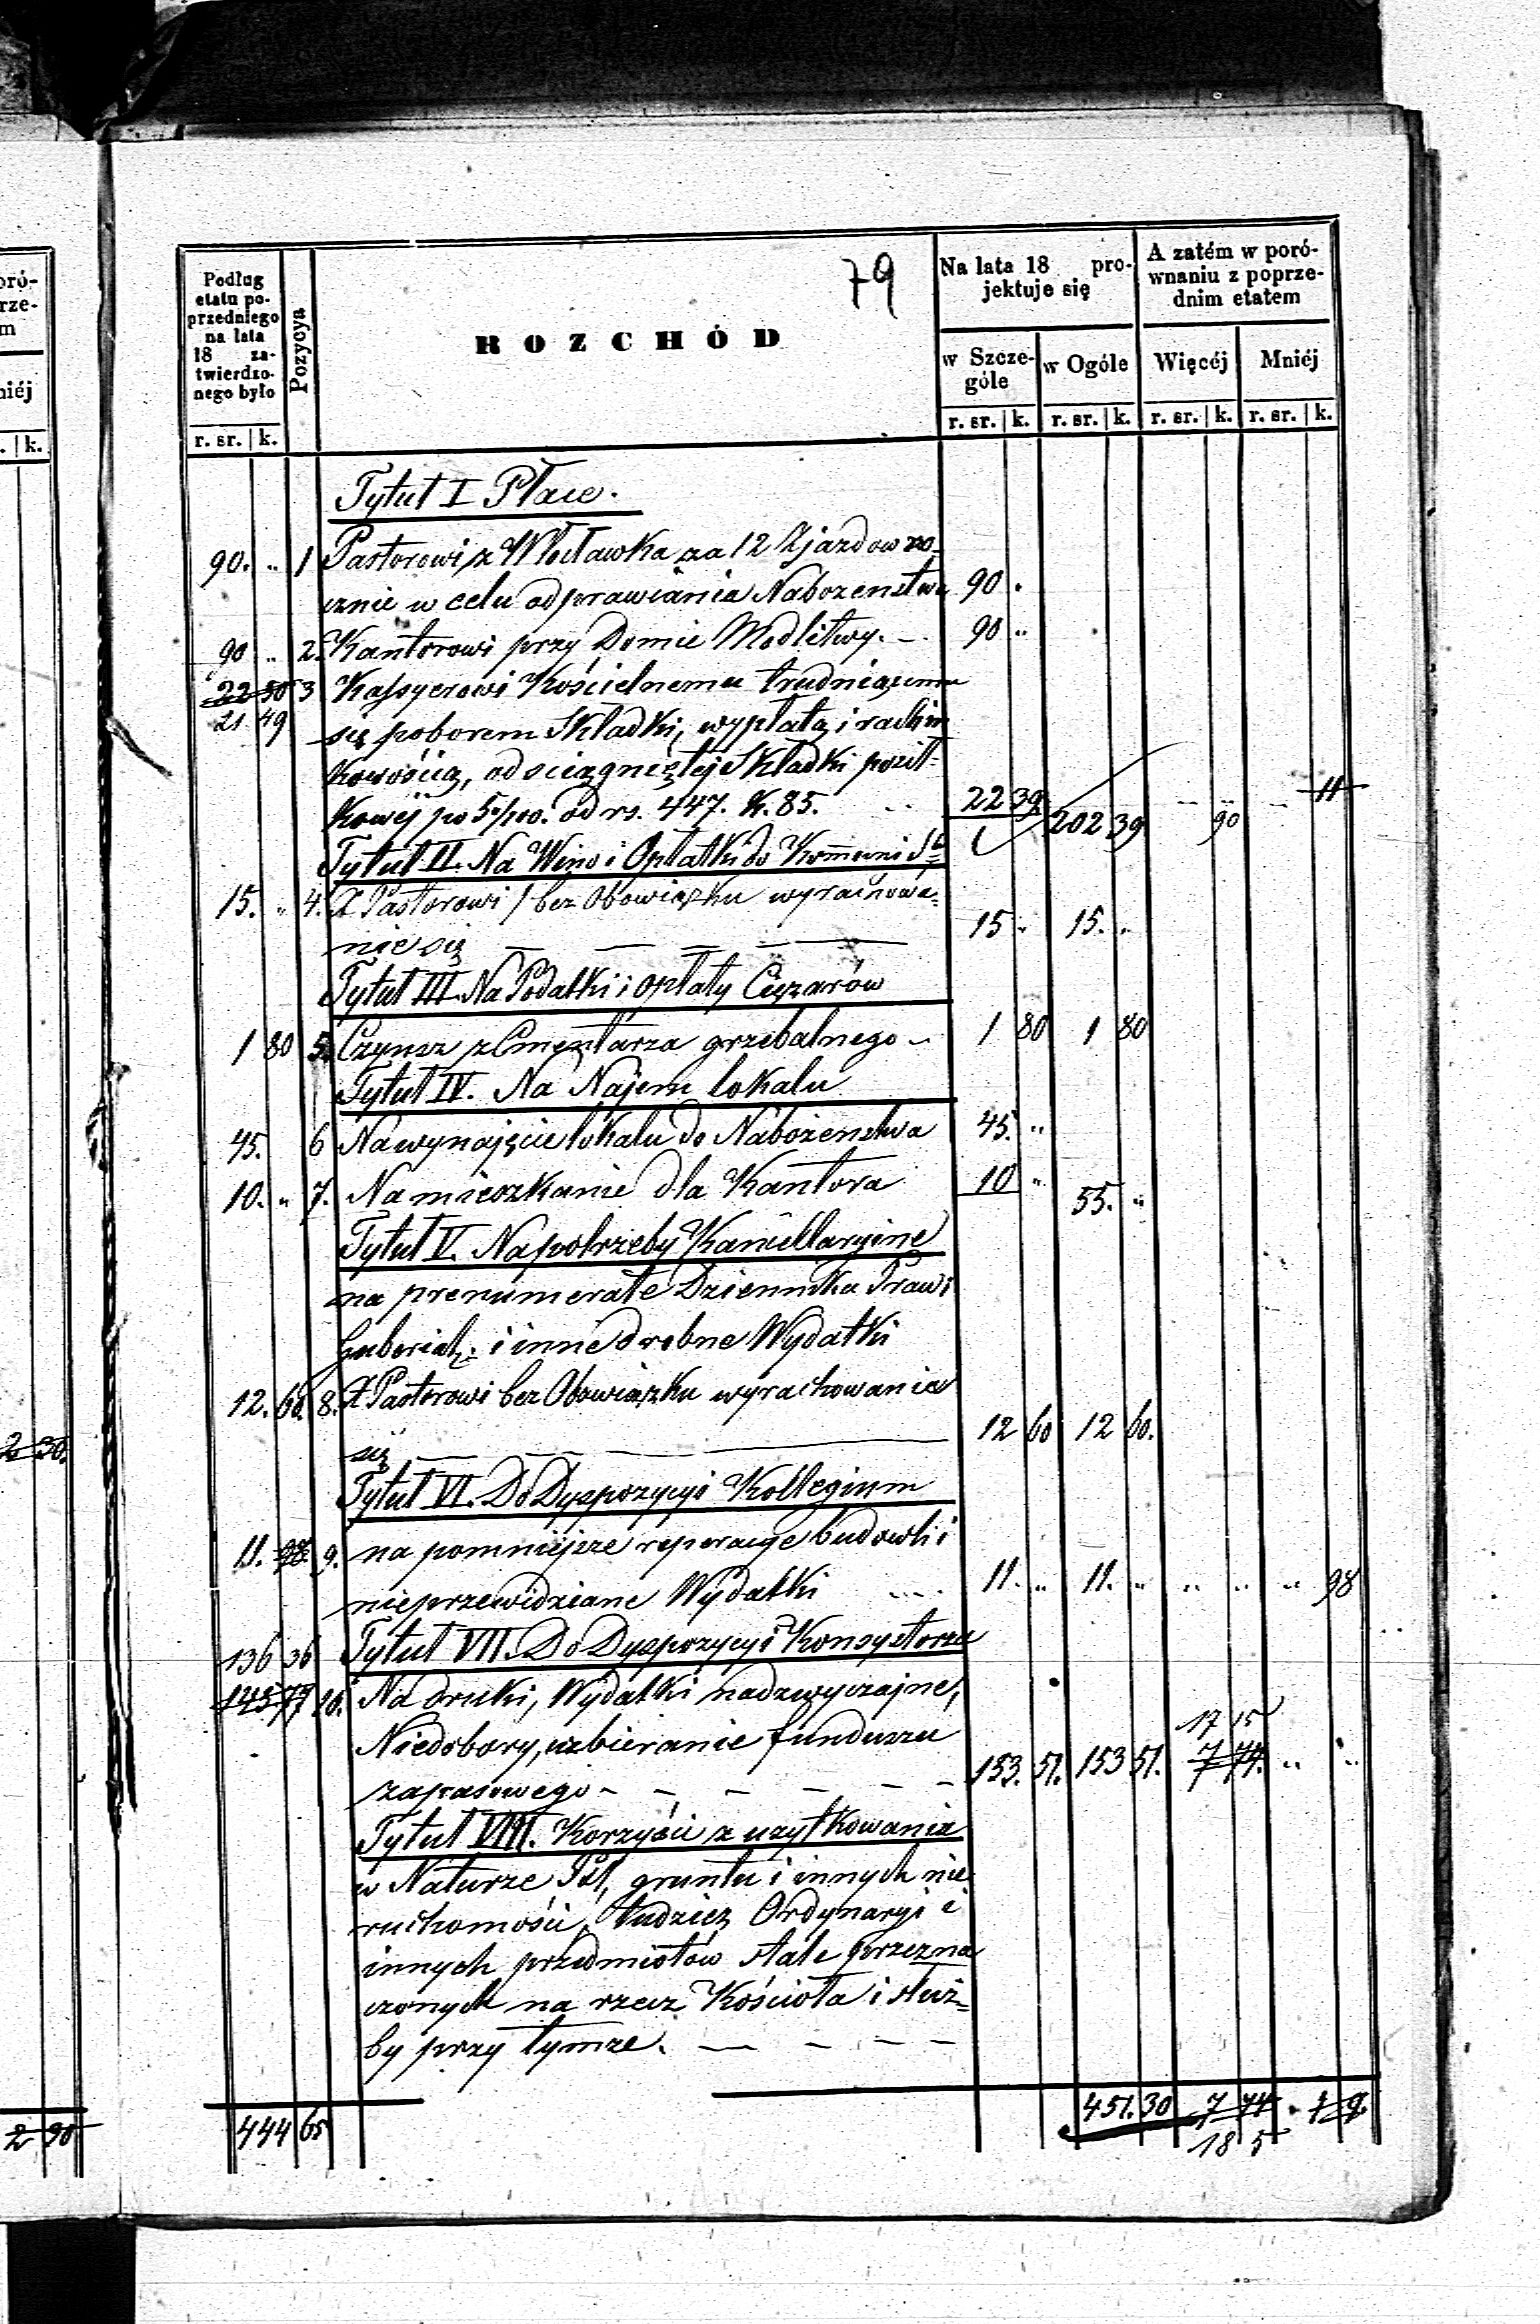 79
Podług etatu poprzedniego na lata 18 zatwierdzonego było
Pozycya
ROZCHÓD
Na lata 18 projektuje się
A zatém w porównaniu z poprzednim etatem
w Szczególe
w Ogóle
Więcéj
Mniéj
r. sr. | k.
r. sr. | k. r. sr. | k. r. sr. | k. r. sr. | k.
Tytuł I Płace.
90. „ 1 Pastorowi z Włocławka za 12 Zjazdow ro-
cznie w celu odprawiania Nabozenstwa 90 „
90 „ 2. Kantorowi przy Domie Modlitwy. — 90 „
22 50 3 Kassyerowi Kościelnemu trudniącemu
21 49 się poborem Składki, wypłatą i rachun
kowością, od sciągniętej Składki posił-
kowej po 5%. od rs. 447. k. 85. 22 39 202 39 „ 90 „ 11
Tytuł II. Na Wino i Opłatki do Kommuni Sej
15. „ 4. X Pastorowi / bez Obowiązku wyrachowa-
nie się — — — — 15 „ 15. „
Tytuł III. Na Podatki i opłaty Ciężarów
1 80 5. Czynsz z Cmentarza grzebalnego — 1 80 1 80
Tytuł IV. Na Najem lokalu
45. 6 Na wynajęcie lokalu do Nabożenstwa 45. „
10. „ 7. Na mieszkanie dla Kantora 10 „ 55. „
Tytuł V. Na potrzeby Kancellaryine
na prenumerate Dziennika Praw i
Guberial. i inne drobne Wydatki
12. 60. 8. X Pastorowi bez Obowiązku wyrachowania
się — — — 12 60 12 60.
Tytuł VI. Do Dyspozycyi Kollegium
11. 98 9. na pomniejsze reperacye budowli i
nieprzewidziane Wydatki 11. „ 11. „ „ „ „ 98
136 36 Tytuł VII. Do Dyspozycyi Konsystorza
145 77 10. Na druki, Wydatki nadzwyczajne,
17 15
Niedobory, uzbieranie funduszu
zapasowego — — — — — 153. 51. 153 51. 7 74. „ „
Tytuł VIII. Korzyści z uzytkowania
w Naturze Pól, gruntu i innych nie
ruchomości, tudzież Ordynaryi i
innych przedmiotów stale przezna
czonych na rzecz Kościoła i służ-
by przy tymze. — — — —
444 65 451. 30 7 74 1 9.
18 5
oró-
rze-
m
niéj
. | k.
2 30.
2 90